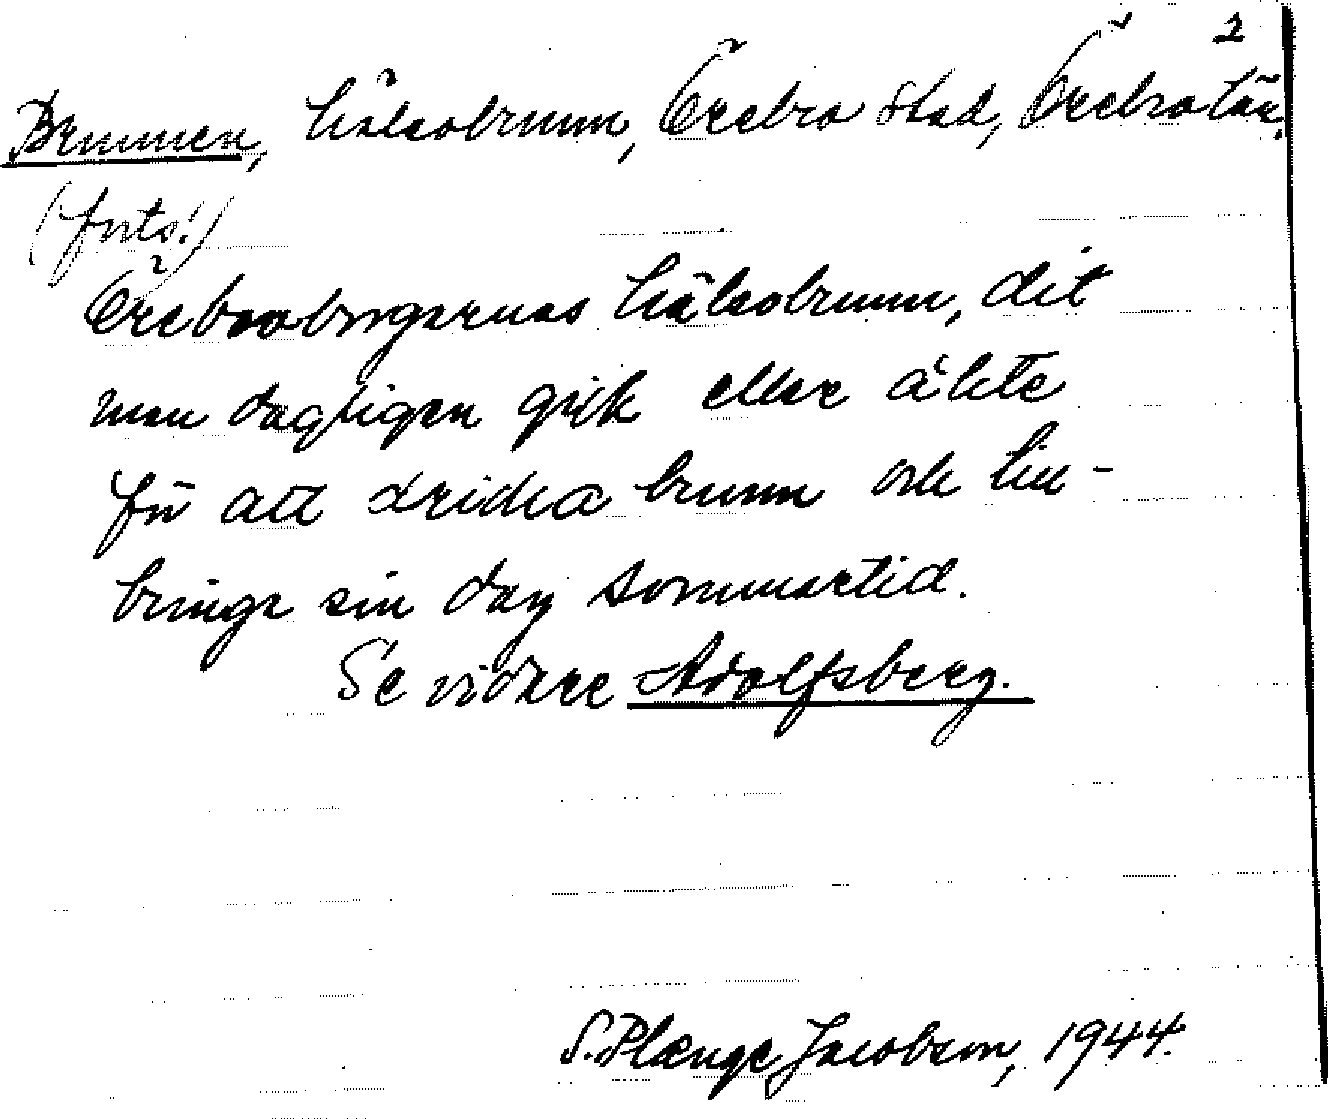 2
Brunnen, hälsobrunn, Örebro stad, Örebro län.
(forts.)
Örebroborgarnas hälsobrunn, dit
man dagligen gick eller åkte
för att dricka brunn och till-
bringa sin dag sommartid.
Se vidare Adolfsberg.
S. Plænge Jacobson, 1944.